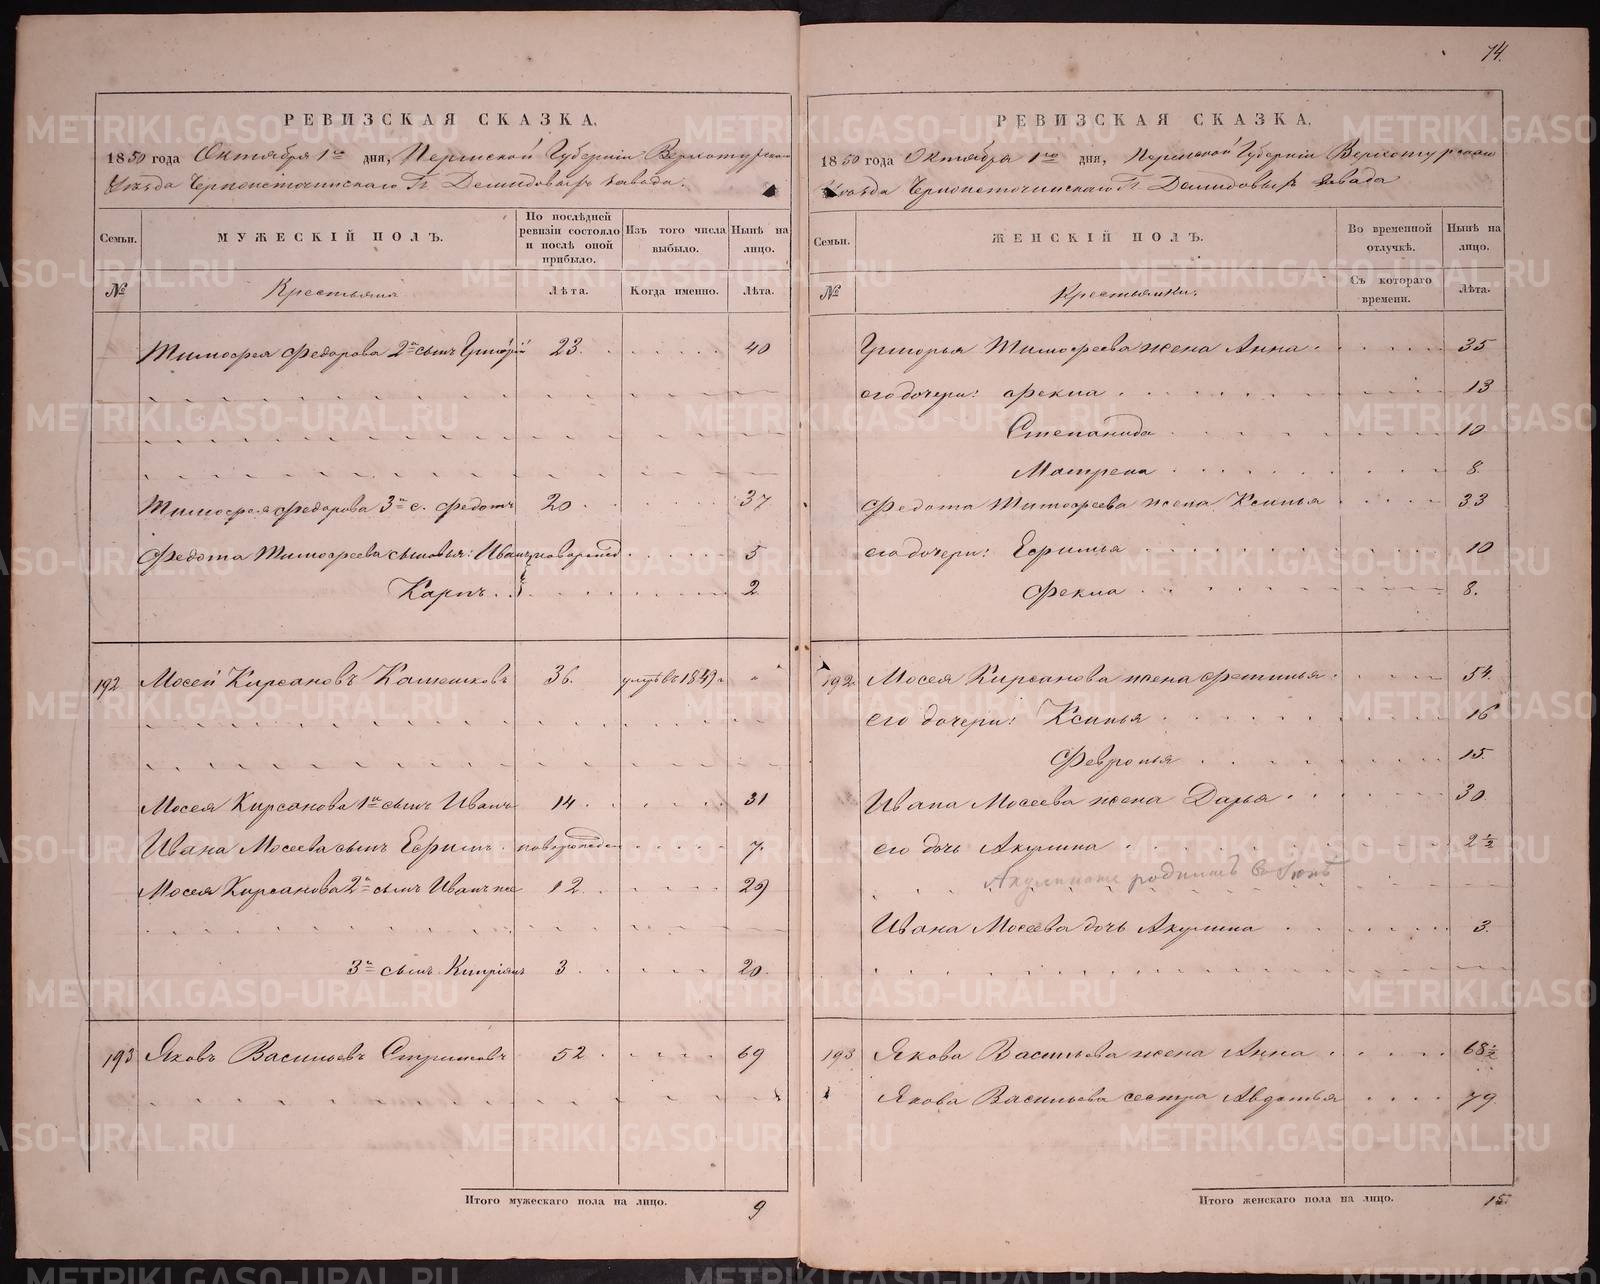 74.
РЕВИЗСКАЯ СКАЗКА.
1850 года Октября 1го дня, Пермской Губерніи Верхотурскаго
Уѣзда Черноисточинскаго Г. Демидовыхъ завода.
Семьи. МУЖЕСКІЙ ПОЛЪ. По послѣдней ревизіи состояло и послѣ оной прибыло. Изъ того числа выбыло. Нынѣ на лицо.
№ Крестьяне Лѣта. Когда именно. Лѣта.
Тимофея Федорова 2й сынъ Григорій 23. 40
Тимофея Федорова 3й с. Федотъ 20 37
Федота Тимофеева сыновья: Иванъ новорожд 5
Карпъ 2
192 Мосей Кирсановъ Камешковъ 36. 1849
Мосея Кирсанова 1й сынъ Иванъ 14 31
Ивана Мосеева сынъ Ефимъ новорожден 7.
Мосея Кирсанова 2й сынъ Иванъ же 12 29
3й сынъ Кипріянъ 3 20.
193 Яковъ Васильевъ 52 69
Итого мужескаго пола на лицо. 9
РЕВИЗСКАЯ СКАЗКА.
1850 года Октября 1го дня, Пермской Губерніи Верхотурскаго
Уѣзда Черноисточинскаго Г. Демидовыхъ завода
Семьи. ЖЕНСКІЙ ПОЛЪ. Во временной отлучкѣ. Нынѣ на лицо.
№ Крестьянки. Съ котораго времени. Лѣта.
Григорья Тимофеева жена Анна 35
его дочери: Фекла 13
Степанида 10
Матрена 8.
Федота Тимофеева жена Ксинья 33
его дочери: Ефимья 10
Фекла 8.
192 Мосея Кирсанова жена Фетинья 54.
его дочери: Ксинья 16
Февронья 15.
Ивана Мосеева жена Дарья 30.
его дочь Акулина 2 1/2
Ивана Мосеева дочь Акулина 3.
193 Якова Васильева жена Анна 68 1/2
Якова Васильева сестра Авдотья 79.
Итого женскаго пола на лицо. 15.
METRIKI.GASO-URAL.RU